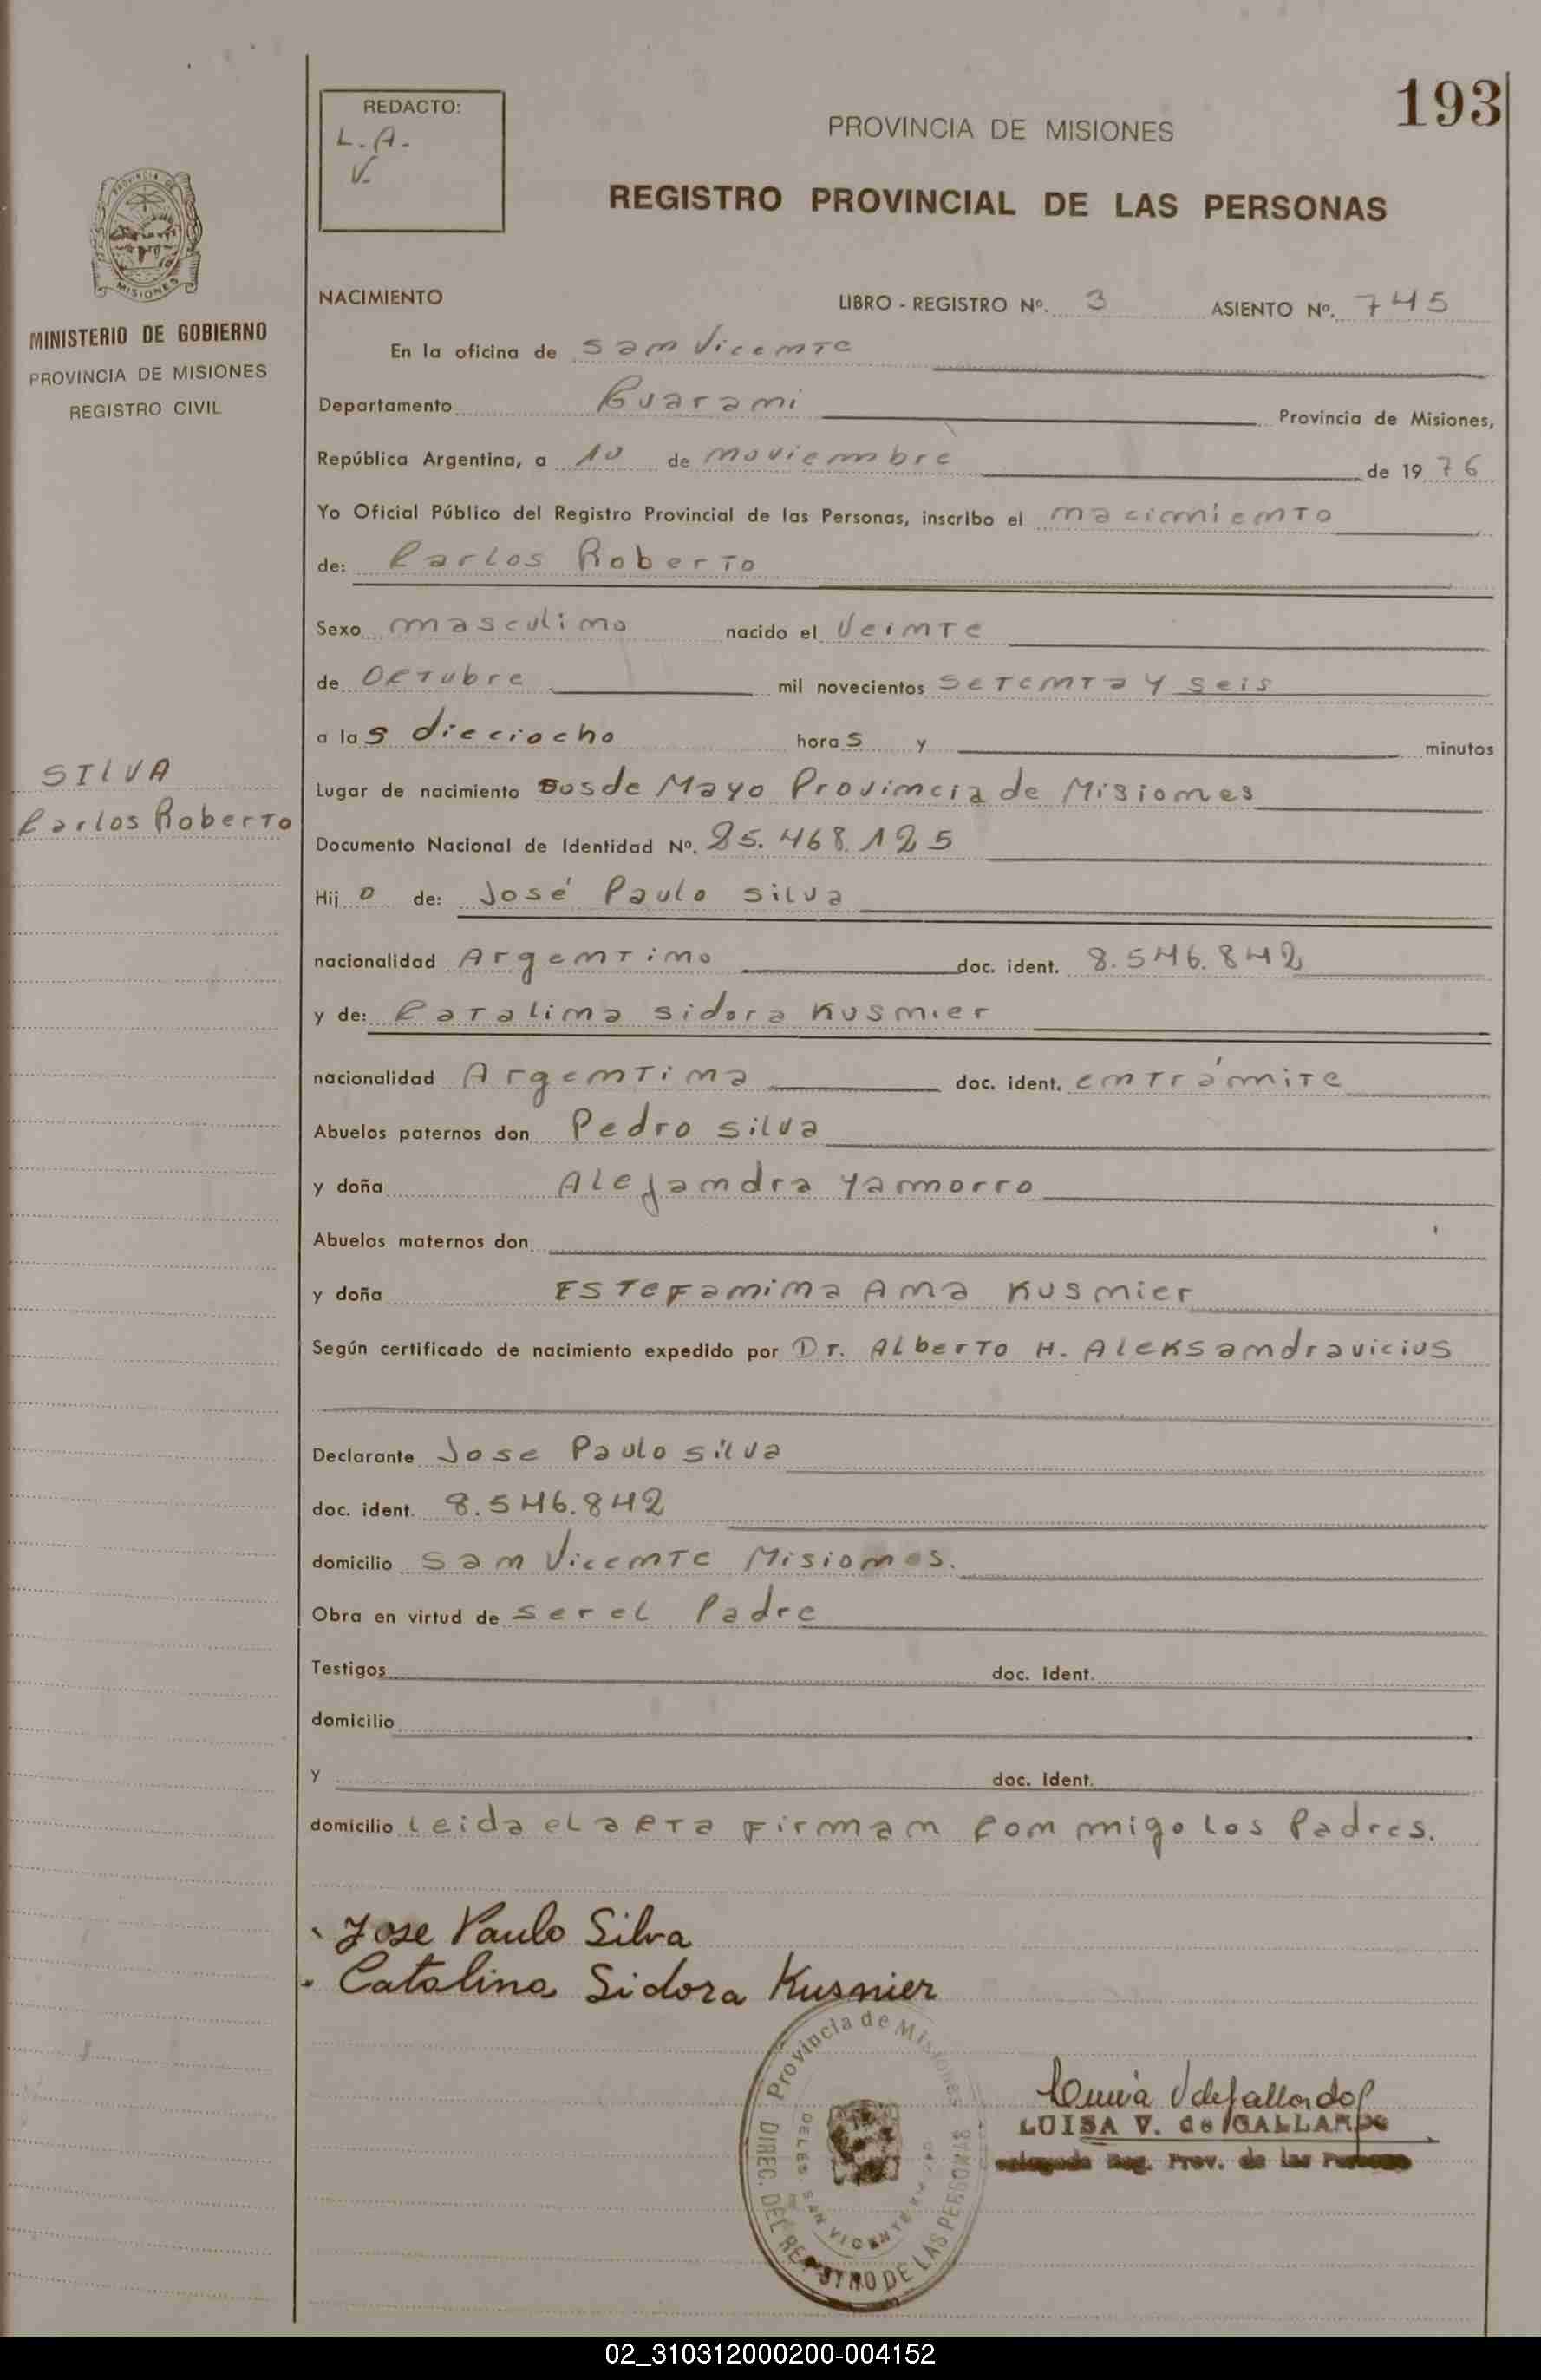 193
REDACTO:
L.A.
V.
PROVINCIA DE MISIONES
REGISTRO PROVINCIAL DE LAS PERSONAS
PROVINCIA DE
MISIONES
MINISTERIO DE GOBIERNO
PROVINCIA DE MISIONES
REGISTRO CIVIL
SILVA
Carlos Roberto
NACIMIENTO LIBRO - REGISTRO Nº. 3 ASIENTO Nº. 745
En la oficina de San Vicente
Departamento Guarani Provincia de Misiones,
República Argentina, a 10 de noviembre de 1976
Yo Oficial Público del Registro Provincial de las Personas, inscribo el nacimiento
de: Carlos Roberto
Sexo masculino nacido el Veinte
de Octubre mil novecientos setenta y seis
a las dieciocho horas y minutos
Lugar de nacimiento Dos de Mayo Provincia de Misiones
Documento Nacional de Identidad Nº. 25.468.125
Hijo de: José Paulo Silva
nacionalidad Argentino doc. ident. 8.546.842
y de: Catalina Sidora Kusnier
nacionalidad Argentina doc. ident. en trámite
Abuelos paternos don Pedro Silva
y doña Alejandra Yannorro
Abuelos maternos don
y doña Estefanina Ana Kusnier
Según certificado de nacimiento expedido por Dr. Alberto H. Aleksandravicius
Declarante Jose Paulo Silva
doc. ident. 8.546.842
domicilio San Vicente Misiones.
Obra en virtud de ser el Padre
Testigos doc. Ident.
domicilio
y doc. Ident.
domicilio Leida el acta firman con migo los Padres.
Jose Paulo Silva
Catalina Sidora Kusnier
Provincia de Misiones
DIREC. DEL REGISTRO DE LAS PERSONAS
SAN VICENTE
LUISA V. de GALLARDO
Reg. Prov. de las Personas
02_310312000200-004152